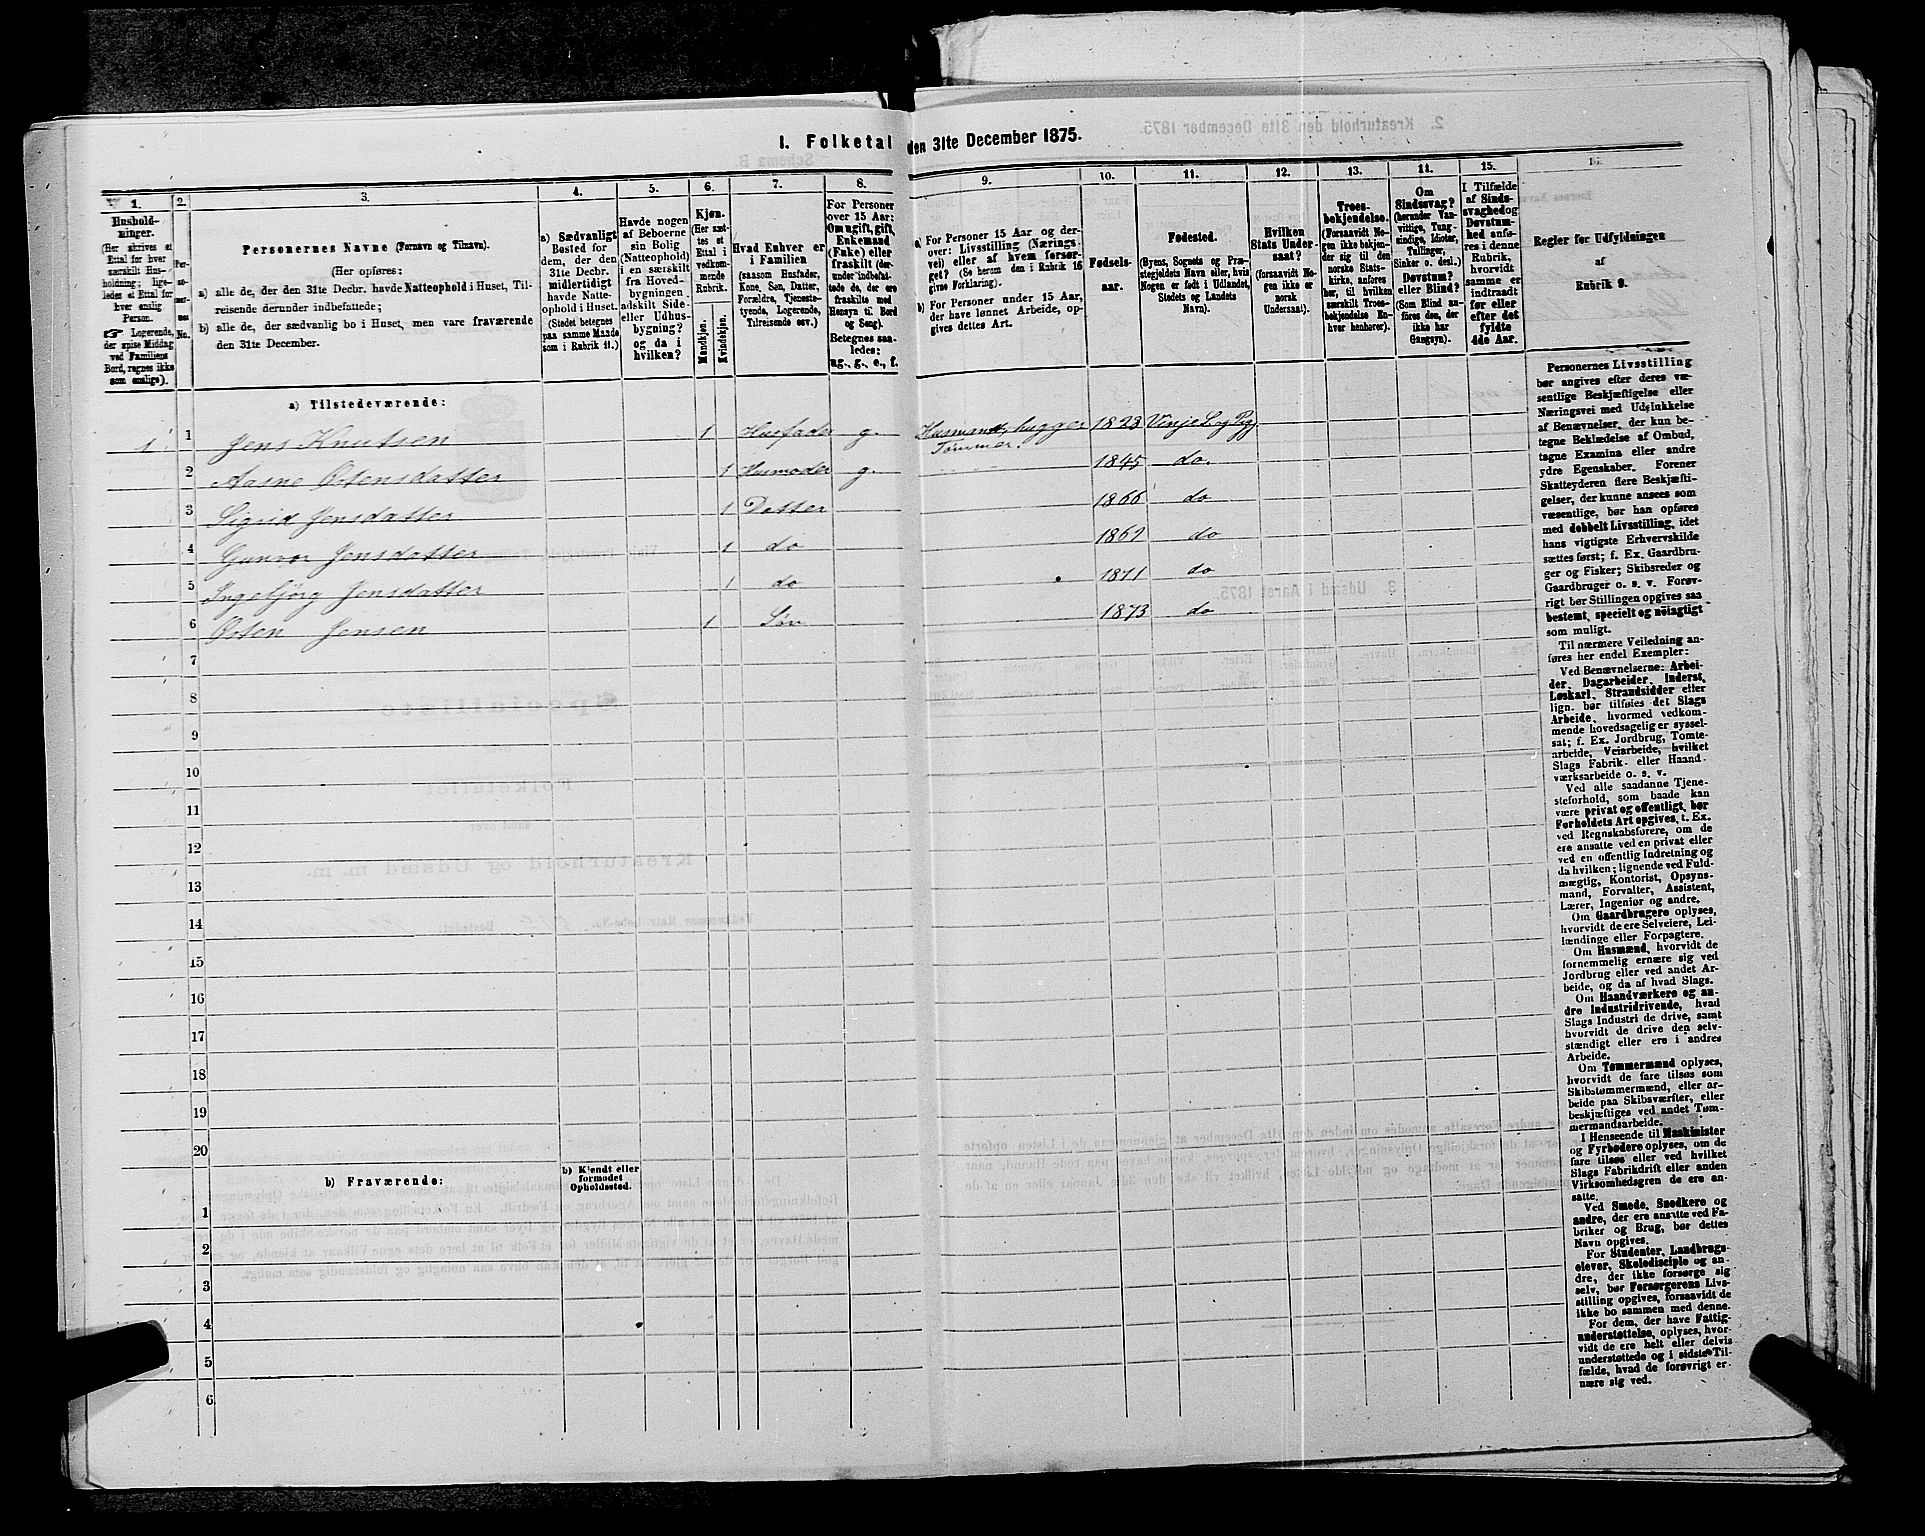 I. Folketal den 31te December 1875.
1.
Hushold-
ninger.
(Her skrives et
Ettal for hver
særskilt Hus-
holdning; lige-
ledes et Ettal for
hver enslig
Person.
☞ Logerende,
der spise Middag
ved Familiens
Bord, regnes ikke
som enslige).
2.
No.
3.
Personernes Navne (Fornavn og Tilnavn).
(Her opføres:
a) alle de, der den 31te Decbr. havde Natteophold i Huset, Til-
reisende derunder indbefattede;
b) alle de, der sædvanlig bo i Huset, men vare fraværende
den 31te December.
4.
a) Sædvanligt
Bosted for
dem, der den
31te Decbr.
midlertidigt
havde Natte-
ophold i Huset.
(Stedet betegnes
paa samme Maade
som i Rubrik 11.)
5.
Havde nogen
af Beboerne
sin Bolig
(Natteophold)
i en særskilt
fra Hoved-
bygningen
adskilt Side-
eller Udhus-
bygning?
og da i
hvilken?
6.
Kjøn.
(Her sæt-
tes et
Ettal i
vedkom-
mende
Rubrik.
Mandkjøn.
Kvindekjøn.
7.
Hvad Enhver er
i Familien
(saasom Husfader,
Kone, Søn, Datter,
Forældre, Tjeneste-
tyende, Logerende,
Tilreisende osv.)
8.
For Personer
over 15 Aar:
Om ugift, gift,
Enkemand
(Enke) eller
fraskilt (der-
under indbefat-
tede de, der ere
fraskilte med
Hensyn til Bord
og Seng).
Betegnes saa-
ledes:
ug., g., e., f.
9.
a) For Personer 15 Aar og der-
over: Livsstilling (Nærings-
vei) eller af hvem forsør-
get? (Se herom den i Rubrik 16
givne Forklaring).
b) For Personer under 15 Aar,
der have lønnet Arbeide, op-
gives dettes Art.
10.
Fødsels-
aar.
11.
Fødested.
(Byens, Sognets og Præ-
stegjeldets Navn eller, hvis
Nogen er født i Udlandet,
Stedets og Landets
Navn).
12.
Hvilken
Stats Under-
saat?
(forsaavidt No-
gen ikke er
norsk
Undersaat).
13.
Troes-
bekjendelse.
(Forsaavidt No-
gen ikke bekjen-
der sig til den
norske Stats-
kirke, anføres
her, til hvilken
særskilt Troes-
bekjendelse En-
hver henhører).
14.
Om
Sindssvag?
(herunder Van-
vittige, Tung-
sindige, Idioter,
Tullinger,
Sinker o. desl.)
Døvstum?
eller Blind?
(Som Blind an-
føres den, der
ikke har
Gangsyn).
15.
I Tilfælde
af Sinds-
svaghed og
Døvstum-
hed anfø-
res i denne
Rubrik,
hvorvidt
samme er
indtraadt
før eller
efter det
fyldte
4de Aar.
Regler for Udfyldningen
af
Rubrik 9.
a) Tilstedeværende:
1 1 Jens Knutsen 1 Husfader g. Husmand, hugger Tømmer. 1823 Vinje S. og Pgj.
2 Aasne Østensdatter 1 Husmoder g. 1845 do.
3 Sigrid Jensdatter 1 Datter 1866 do
4 Gunvor Jensdatter 1 do 1869 do
5 Ingebjörg Jensdatter 1 do 1871 do
6 Østen Jensen 1 Søn 1873 do
7
8
9
10
11
12
13
14
15
16
17
18
19
20
b) Fraværende:
b) Kjendt eller
formodet
Opholdssted.
1
2
3
4
5
6
Personernes Livsstilling
bør angives efter deres væ-
sentlige Beskjæftigelse eller
Næringsvei med Udelukkelse
af Benævnelser, der kun be-
tegne Beklædelse af Ombud,
tagne Examina eller andre
ydre Egenskaber. Forener
Skatteyderen flere Beskjæfti-
gelser, der kunne ansees som
væsentlige, bør han opføres
med dobbelt Livsstilling, idet
hans vigtigste Erhvervskilde
sættes først; f. Ex. Gaardbru-
ger og Fisker; Skibsreder og
Gaardbruger o. s. v. Forøv-
rigt bør Stillingen opgives saa
bestemt, specielt og nøiagtigt
som muligt.
Til nærmere Veiledning an-
føres her endel Exempler:
Ved Benævnelserne: Arbei-
der, Dagarbeider, Inderst,
Løskarl, Strandsidder eller
lign. bør tilføies det Slags
Arbeide, hvormed vedkom-
mende hovedsagelig er syssel-
sat; f. Ex. Jordbrug, Tomte-
arbeide, Veiarbeide, hvilket
Slags Fabrik- eller Haand-
værksarbeide o. s. v.
Ved alle saadanne Tjene-
steforhold, som baade kan
være privat og offentligt, bør
Forholdets Art opgives, t. Ex.
ved Regnskabsførere, om de
ere ansatte ved en privat eller
ved en offentlig Indretning og
da hvilken; lignende ved Fuld-
mægtig, Kontorist, Opsyns-
mand, Forvalter, Assistent,
Lærer, Ingeniør og andre.
Om Gaardbrugere oplyses,
hvorvidt de ere Selveiere, Lei-
lændinge eller Forpagtere.
Om Husmænd, hvorvidt de
fornemmelig ernære sig ved
Jordbrug eller ved andet Ar-
beide, og da af hvad Slags.
Om Haandværkere og an-
dre Industridrivende, hvad
Slags Industri de drive, samt
hvorvidt de drive den selv-
stændigt eller ere i andres
Arbeide.
Om Tømmermænd oplyses,
hvorvidt de fare tilsøs som
Skibstømmermænd, eller ar-
beide paa Skibsværfter, eller
beskjæftiges ved andet Tøm-
mermandsarbeide.
I Henseende til Maskinister
og Fyrbødere oplyses, om de
fare tilsøs eller ved hvilket
Slags Fabrikdrift eller anden
Virksomhedsgren de ere an-
satte.
Ved Smede, Snedkere og
andre, der ere ansatte ved Fa-
briker og Brug, bør dettes
Navn opgives.
For Studenter, Landbrugs-
elever, Skoledisciple og an-
dre, der ikke forsørge sig
selv, bør Forsørgerens Livs-
stilling opgives, forsaavidt de
ikke bo sammen med denne.
For dem, der have Fattig-
understøttelse, oplyses, hvor-
vidt de ere helt eller delvis
understøttede og i sidste Til-
fælde, hvad de forøvrigt er-
nære sig ved.